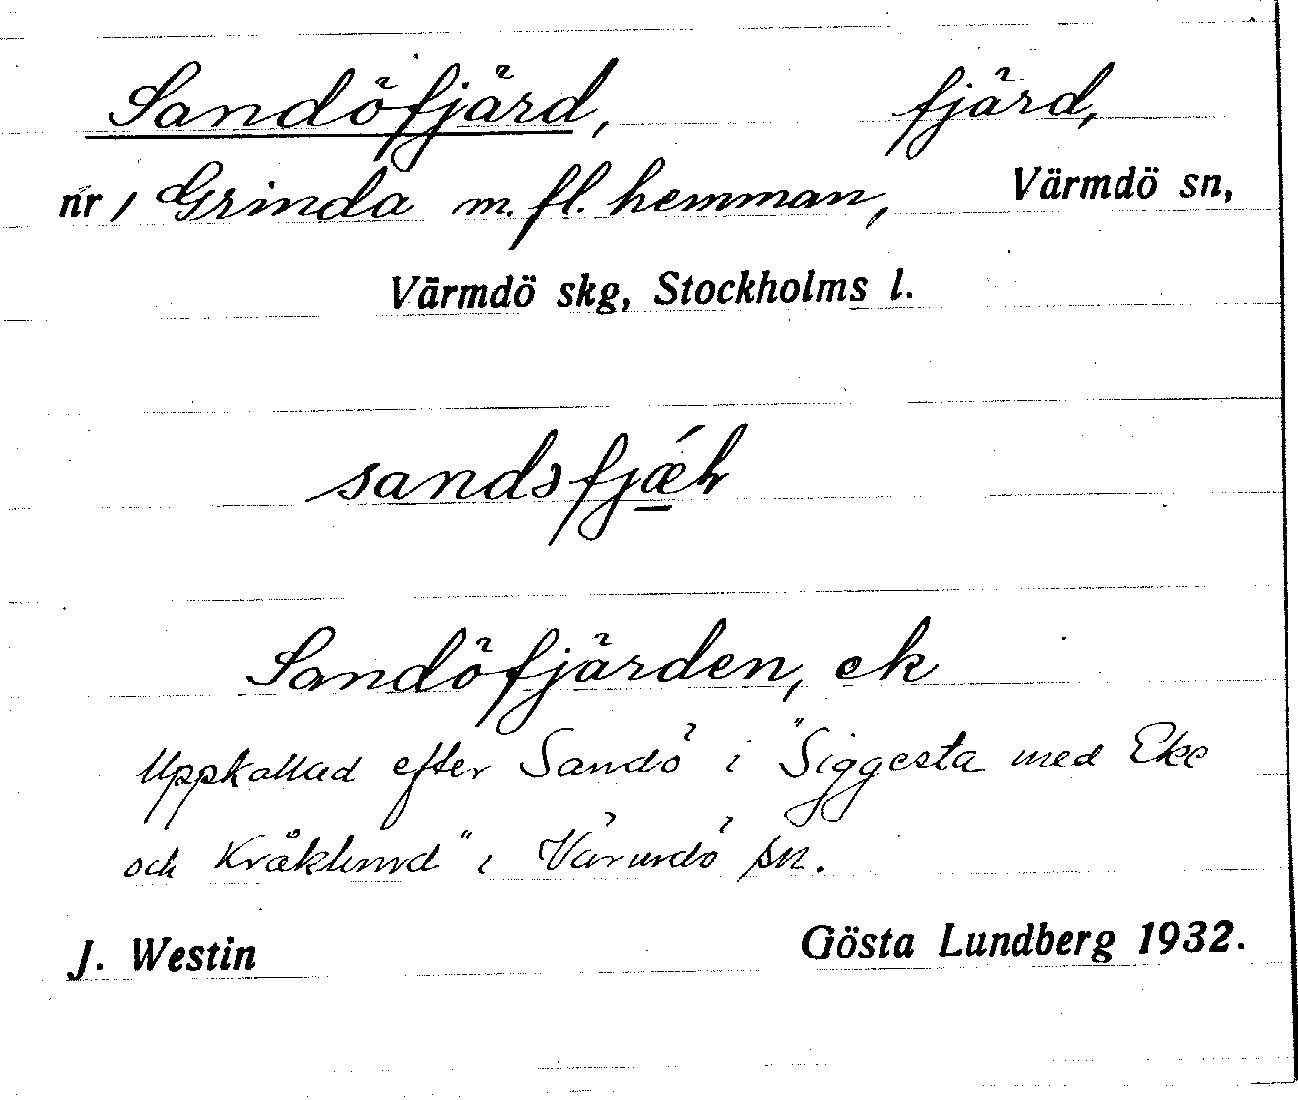 Sandöfjärd, fjärd,
nr 1 Grinda m. fl. hemman, Värmdö sn,
Värmdö skg, Stockholms l.
Sandöfjärden, ek
Uppkallad efter Sandö i "Siggesta med Eke
och Kråklund" i Värmdö sn.
J. Westin Gösta Lundberg 1932.